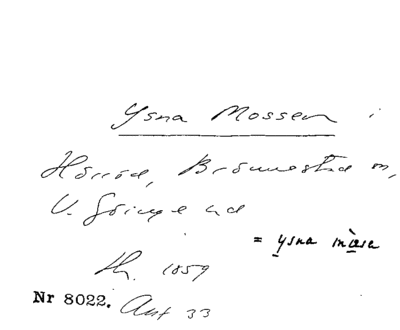 Ysna Mossen i
Hörröd, Brönnestad sn,
V. Göinge hd
= ysna mòsa
th. 1859
Nr 8022. Aut 33